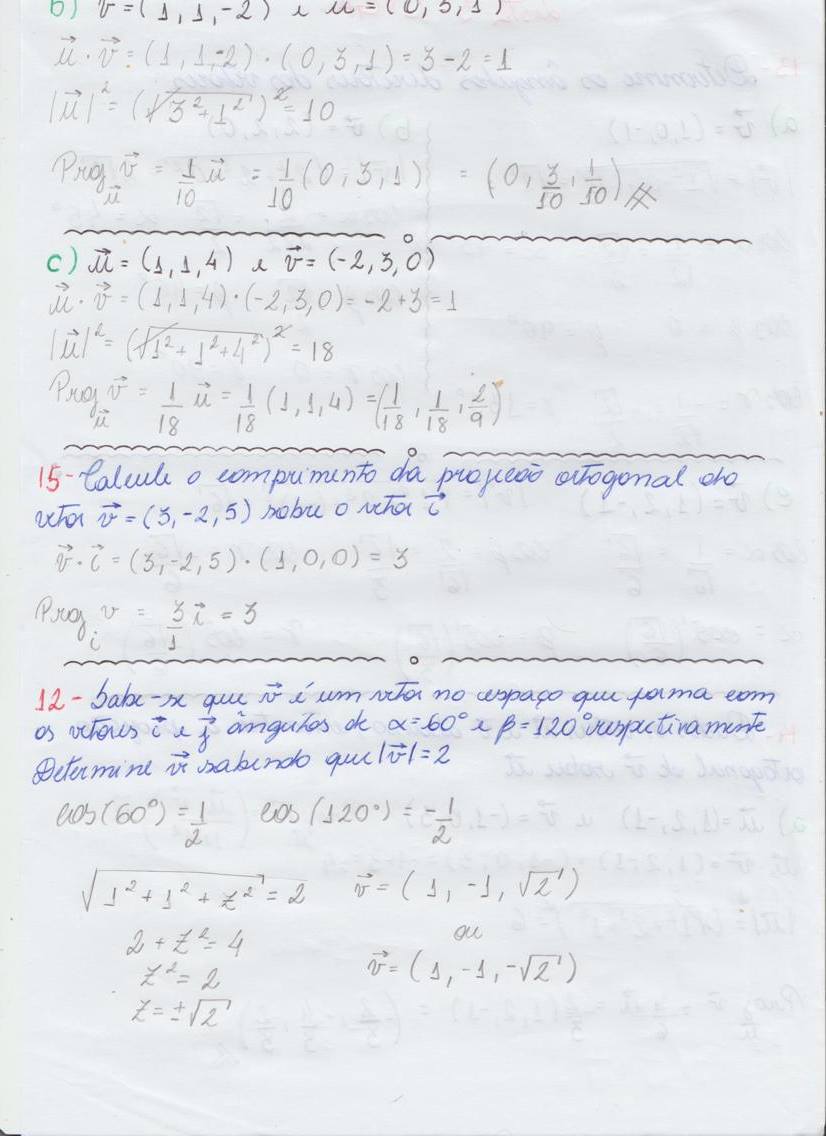 b) v⃗ = (1, 1, -2) e u⃗ = (0, 3, 1)
u⃗ · v⃗ = (1, 1, -2) · (0, 3, 1) = 3 - 2 = 1
|u⃗|² = (√(3² + 1²))² = 10
Proj_u⃗ v⃗ = 1/10 u⃗ = 1/10 (0, 3, 1) = (0, 3/10, 1/10)
c) u⃗ = (1, 1, 4) e v⃗ = (-2, 3, 0)
u⃗ · v⃗ = (1, 1, 4) · (-2, 3, 0) = -2 + 3 = 1
|u⃗|² = (√(1² + 1² + 4²))² = 18
Proj_u⃗ v⃗ = 1/18 u⃗ = 1/18 (1, 1, 4) = (1/18, 1/18, 2/9)
15 - Calcule o comprimento da projeção ortogonal do
vetor v⃗ = (3, -2, 5) sobre o vetor i⃗
v⃗ · i⃗ = (3, -2, 5) · (1, 0, 0) = 3
Proj_i v = 3/1 i⃗ = 3
12 - Sabe-se que v⃗ é um vetor no espaço que forma com
os vetores i⃗ e j⃗ ângulos de α = 60° e β = 120° respectivamente
Determine v⃗ sabendo que |v⃗| = 2
cos(60°) = 1/2 cos(120°) = -1/2
√(1² + 1² + z²) = 2 v⃗ = (1, -1, √2)
2 + z² = 4 ou
z² = 2 v⃗ = (1, -1, -√2)
z = ±√2